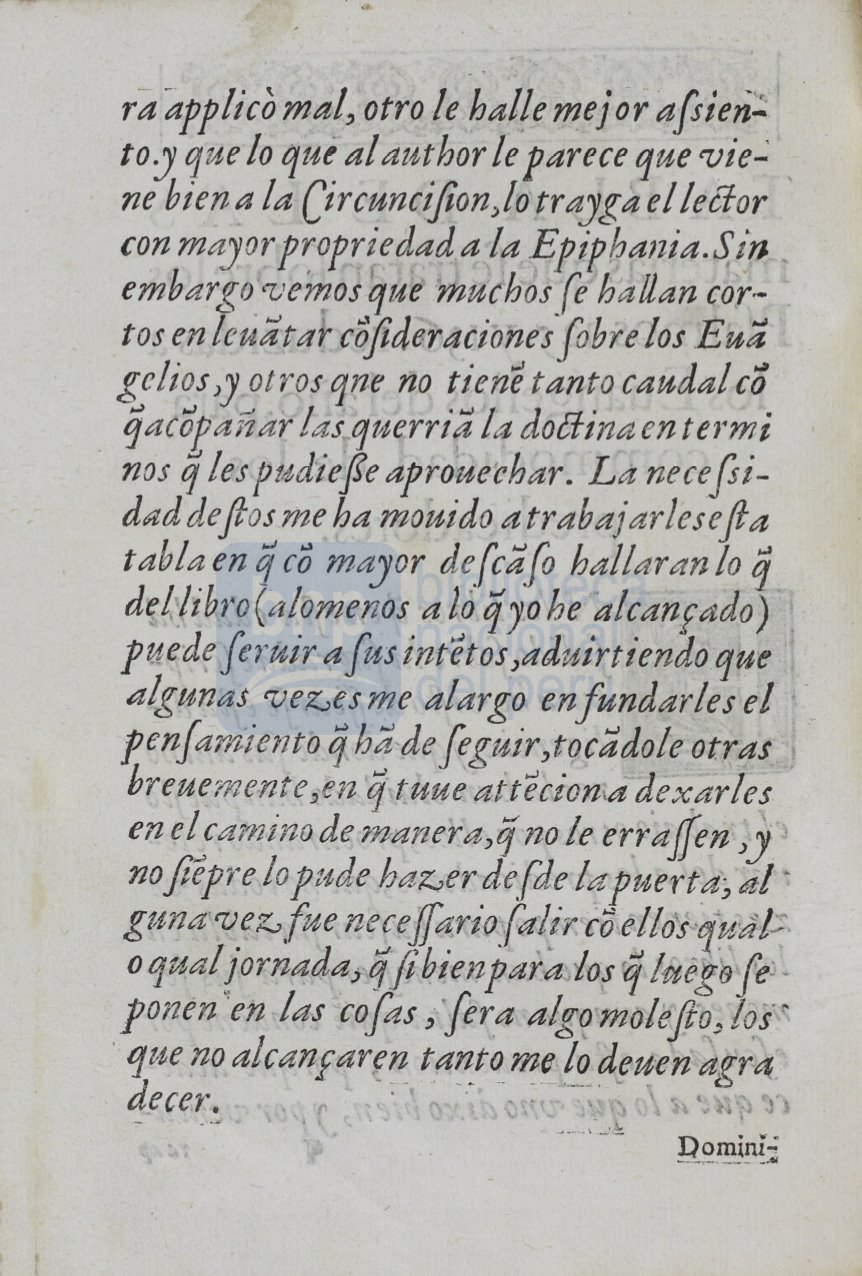 ra applicò mal, otro le halle mejor aſsien-
to.y que lo que al author le parece que vie-
ne bien a la Circunciſion,lo trayga el lector
con mayor propriedad a la Epiphania.Sin
embargo vemos que muchos ſe hallan cor-
tos en leuãtar cõſideraciones ſobre los Euã
gelios,y otros qne no tienẽ tanto caudal cõ
q̃ acõpañar las querriã la doctina en termi
nos q̃ les pudieſſe aprouechar. La neceſsi-
dad deſtos me ha mouido a trabajarles eſta
tabla en q̃ cõ mayor deſcãſo hallaran lo q̃
del libro (alomenos a lo q̃ yo he alcançado)
puede ſeruir a ſus intẽtos,aduirtiendo que
algunas vezes me alargo en fundarles el
penſamiento q̃ hã de ſeguir,tocãdole otras
breuemente,en q̃ tuue attẽcion a dexarles
en el camino de manera,q̃ no le erraſſen , y
no ſiẽpre lo pude hazer deſde la puerta, al
guna vez fue neceſſario ſalir cõ ellos qual
o qual jornada, q̃ ſi bien para los q̃ luego ſe
ponen en las coſas , ſera algo moleſto, los
que no alcançaren tanto me lo deuen agra
decer.
Domini-
biblioteca
nacional
del perú